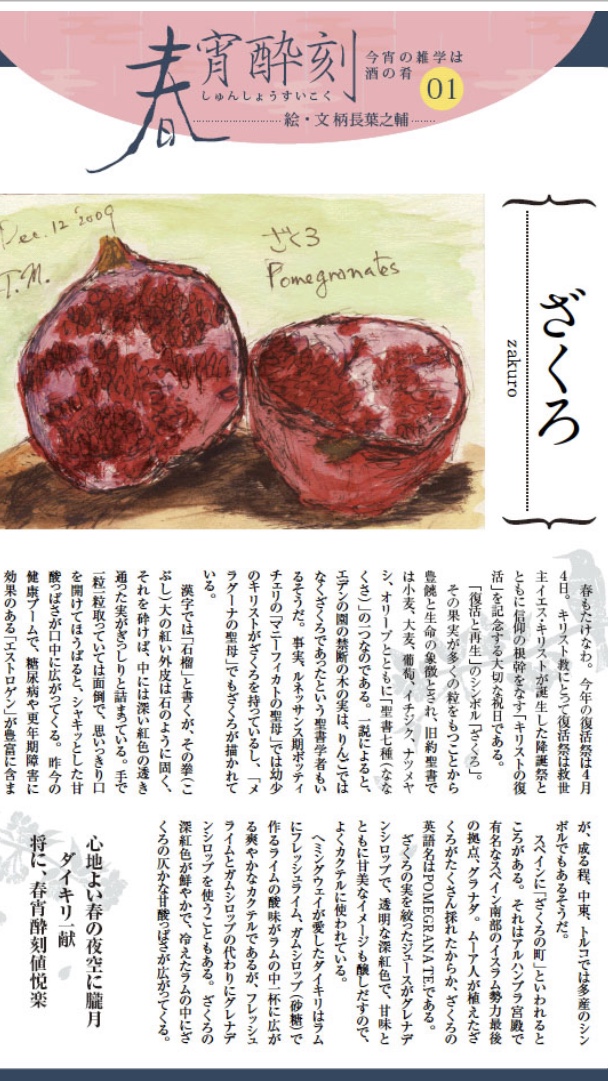 春宵酔刻
しゅんしょうすいこく
今宵の雑学は
酒の肴
01
絵・文 柄長葉之輔
Dec. 12 2009
T.M.
ざくろ
Pomegranates
ざくろ
zakuro
春もたけなわ。今年の復活祭は4月
4日。キリスト教にとって復活祭は救世
主イエス・キリストが誕生した降誕祭と
ともに信仰の根幹をなす「キリストの復
活」を記念する大切な祝日である。
「復活と再生」のシンボル「ざくろ」。
その果実が多くの粒をもつことから
豊饒と生命の象徴とされ、旧約聖書で
は小麦、大麦、葡萄、イチジク、ナツメヤ
シ、オリーブとともに「聖書七種(なな
くさ)」の一つなのである。一説によると、
エデンの園の禁断の木の実は、りんごでは
なくざくろであったという聖書学者もい
るそうだ。事実、ルネッサンス期ボッティ
チェリの「マニーフィカトの聖母」では幼少
のキリストがざくろを持っているし、「メ
ラグラーナの聖母」でもざくろが描かれて
いる。
漢字では「石榴」と書くが、その拳(こ
ぶし)大の紅い外皮は石のように固く、
それを砕けば、中には深い紅色の透き
通った実がぎっしりと詰まっている。手で
一粒一粒取っていては面倒で、思いっきり口
を開けてほうばると、シャキッとした甘
酸っぱさが口中に広がってくる。昨今の
健康ブームで、糖尿病や更年期障害に
効果のある「エストロゲン」が豊富に含ま
が、成る程、中東、トルコでは多産のシン
ボルでもあるそうだ。
スペインに「ざくろの町」といわれると
ころがある。それはアルハンブラ宮殿で
有名なスペイン南部のイスラム勢力最後
の拠点、グラナダ。ムーア人が植えたざ
くろがたくさん採れたからか、ざくろの
英語名はPOMEGRANATEである。
ざくろの実を絞ったジュースがグレナデ
ンシロップで、透明な深紅色で、甘味と
ともに甘美なイメージも醸しだすので、
よくカクテルに使われている。
ヘミングウェイが愛したダイキリはラム
にフレッシュライム、ガムシロップ(砂糖)で
作るライムの酸味がラムの中一杯に広が
る爽やかなカクテルであるが、フレッシュ
ライムとガムシロップの代わりにグレナデ
ンシロップを使うこともある。ざくろの
深紅色が鮮やかで、冷えたラムの中にざ
くろの仄かな甘酸っぱさが広がってくる。
心地よい春の夜空に朧月
ダイキリ一献
将に、春宵酔刻値悦楽